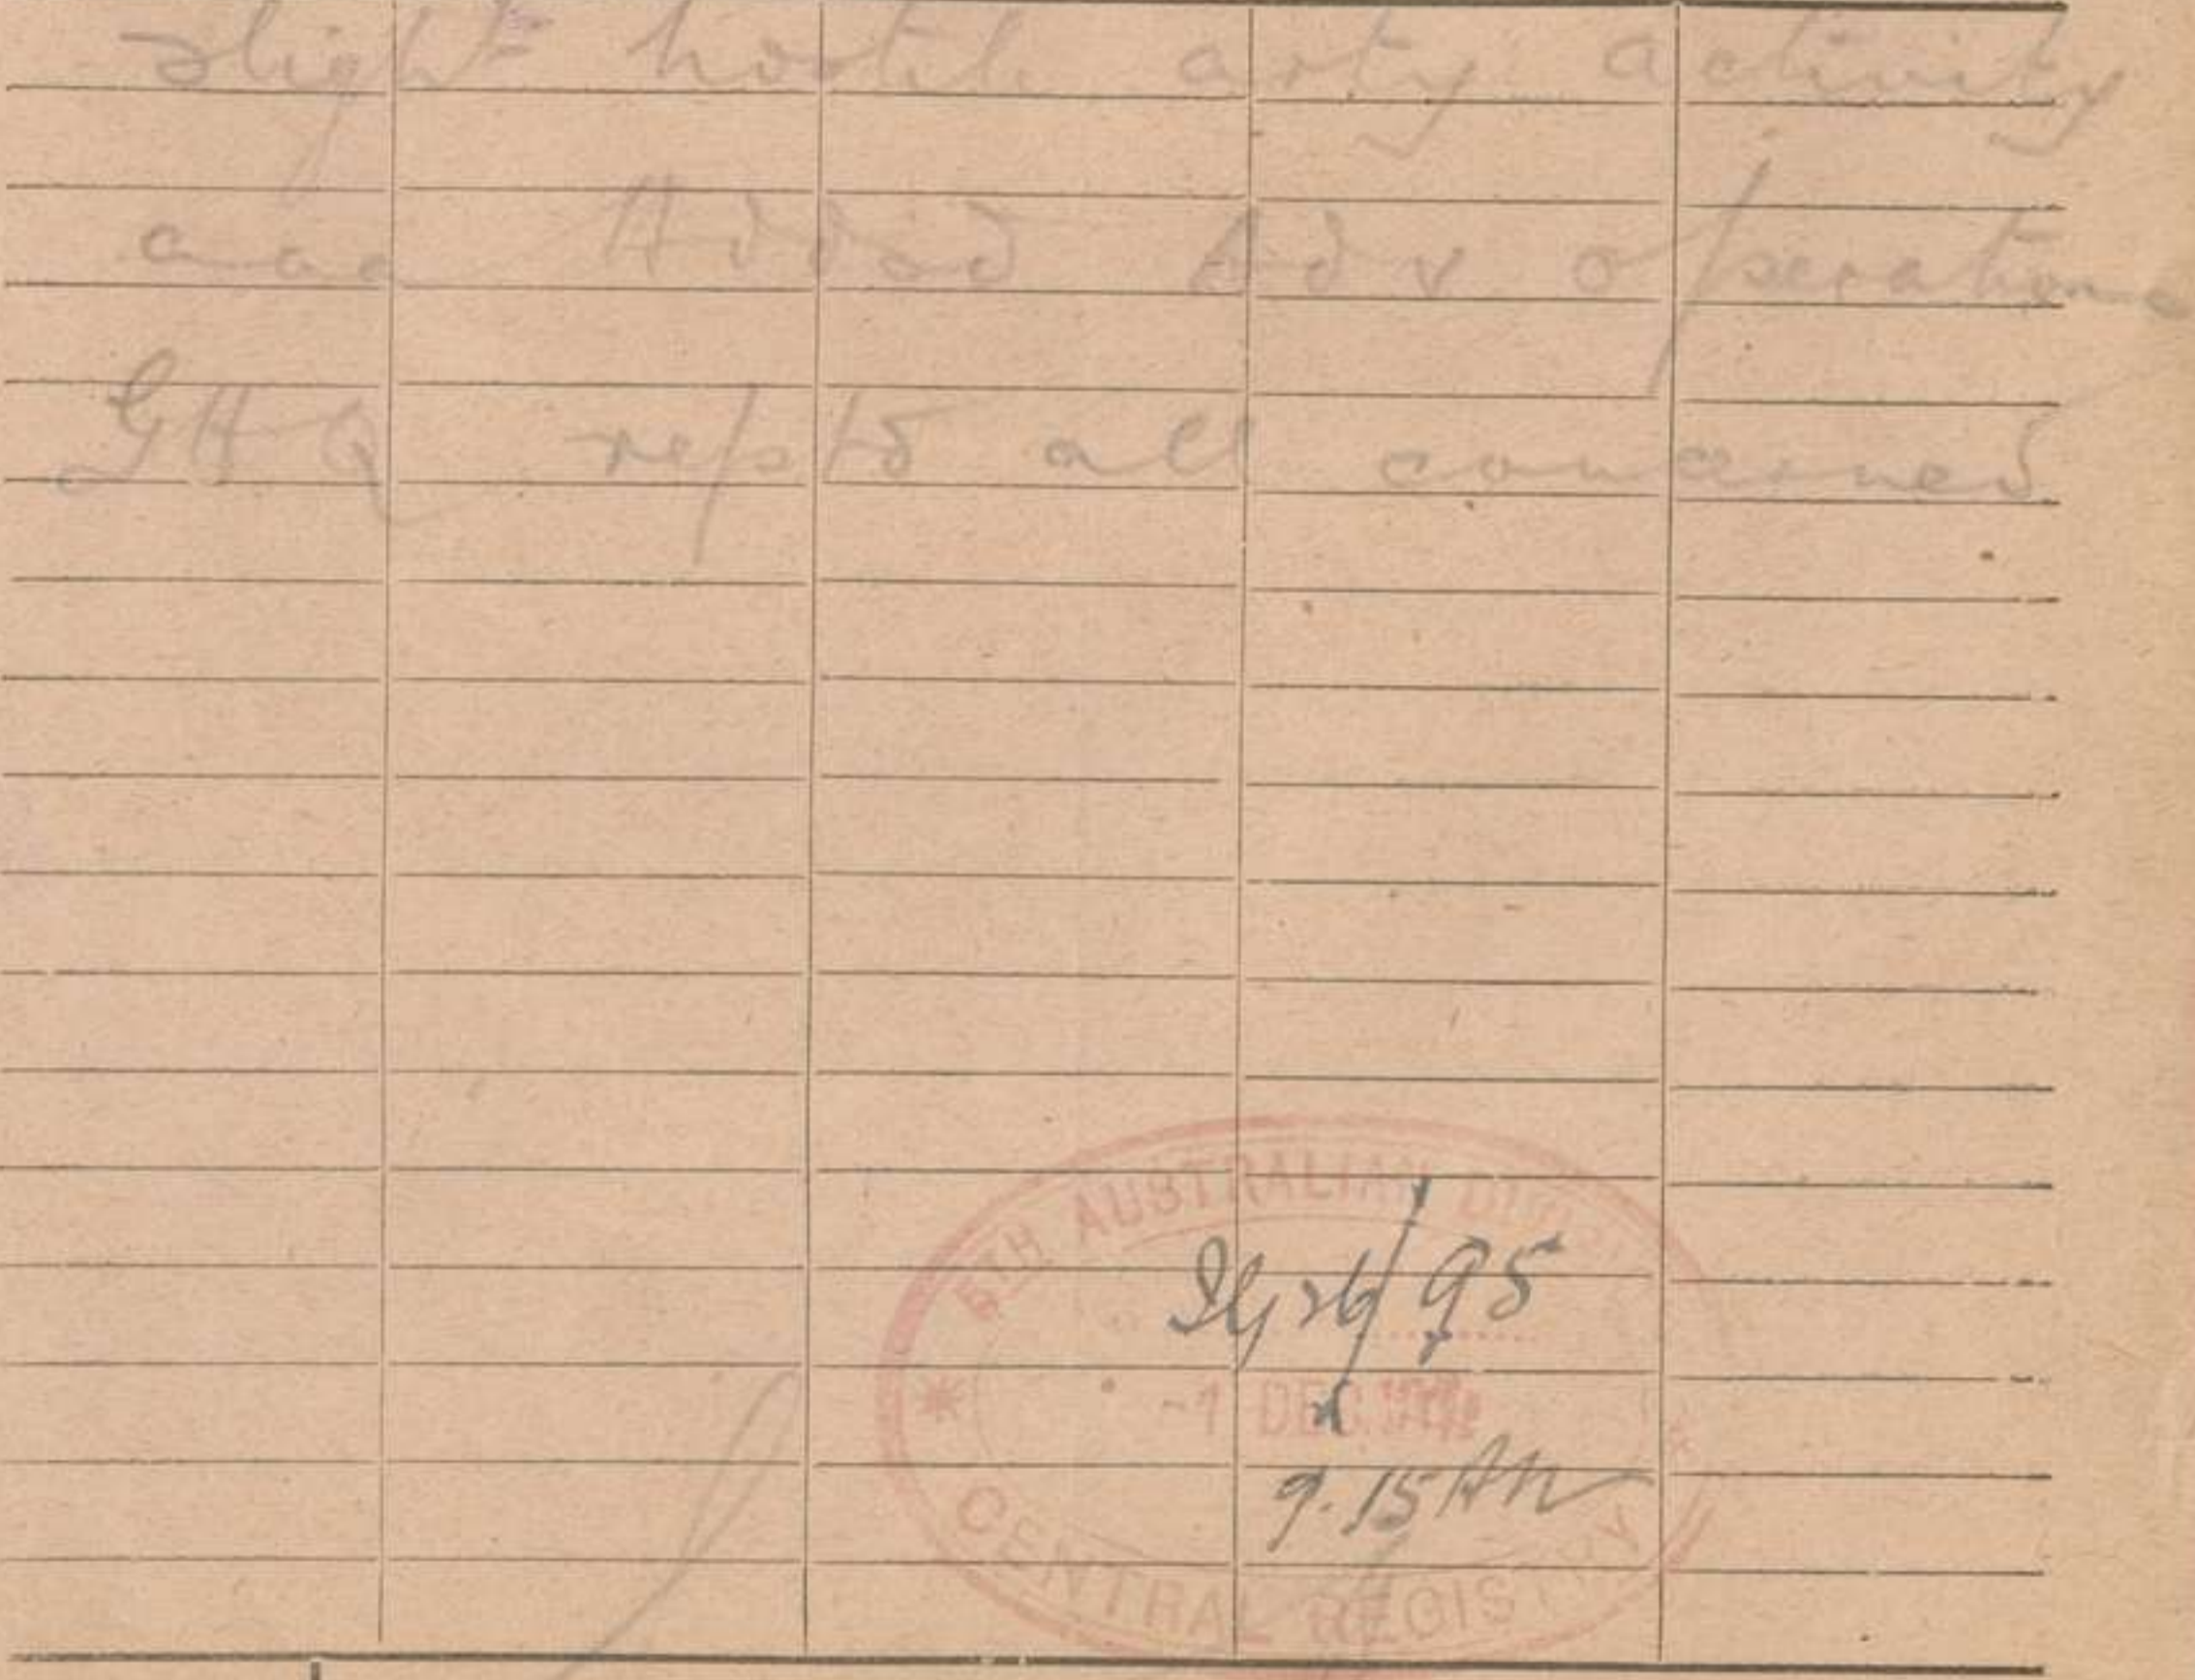 slight hostile arty activity
aaa Addsd Adv operations
GHQ reptd all concerned
5TH AUSTRALIAN DIVISION
Ig 26/95
-1 DEC.
9.15 AM
CENTRAL REGISTRY